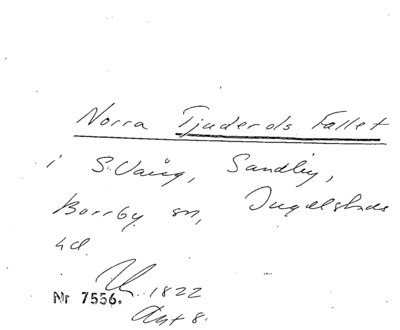 Norra Tjuderds Fallet
i S. Vång, Sandby,
Borrby sn, Ingelstads
hd.
1822
Nr 7556.
Akt 8.